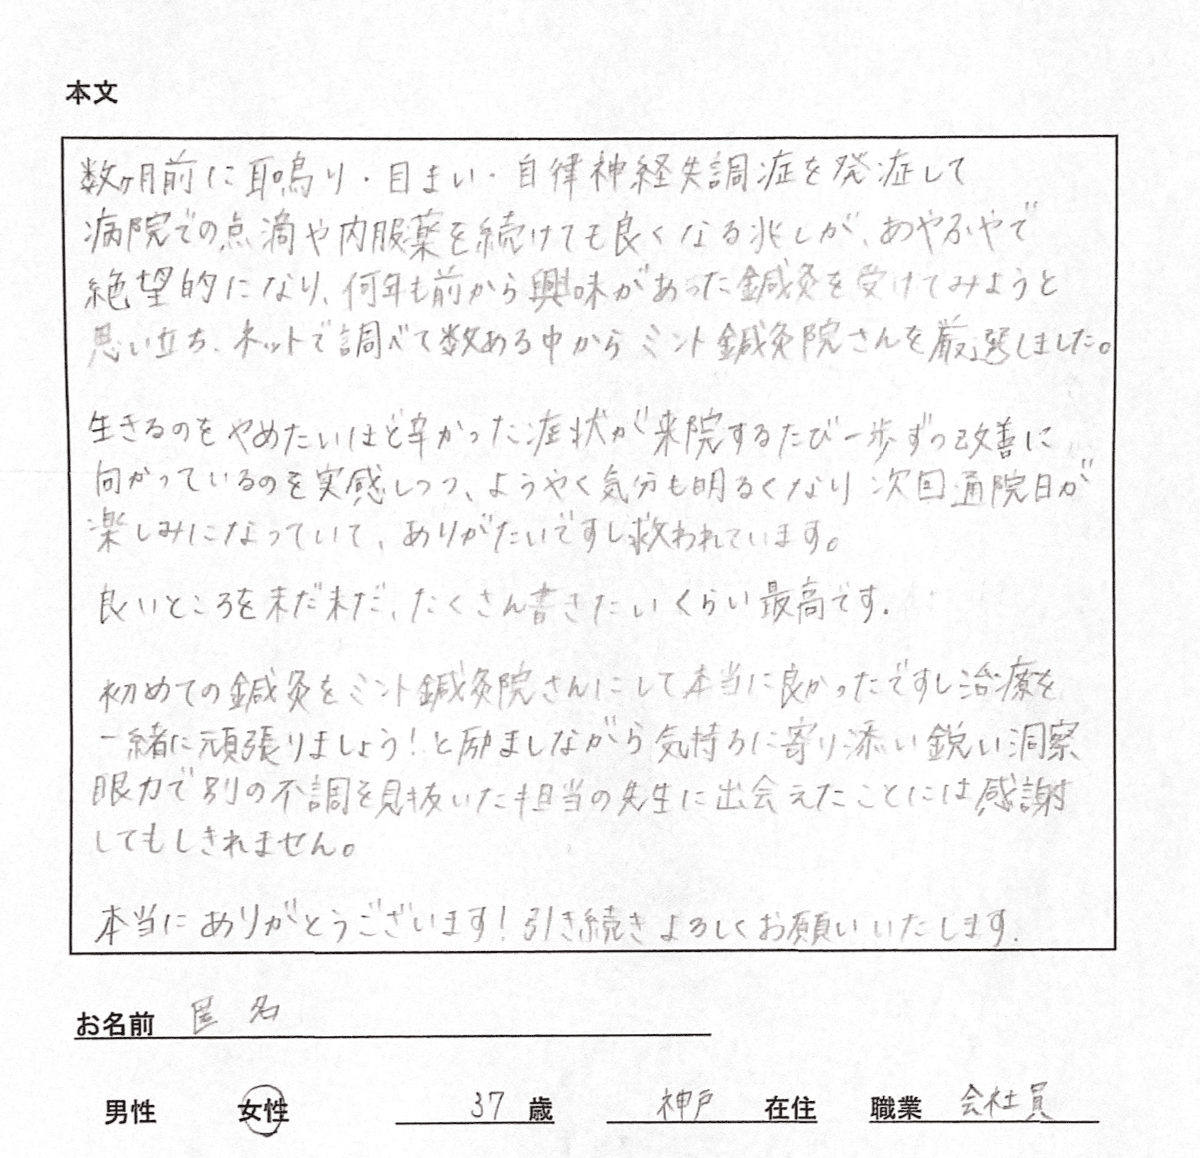 本文
数ヶ月前に耳鳴り・目まい・自律神経失調症を発症して
病院での点滴や内服薬を続けても良くなる兆しが、あやふやで
絶望的になり、何年も前から興味があった鍼灸を受けてみようと
思い立ち、ネットで調べて数ある中からミント鍼灸院さんを厳選しました。
生きるのをやめたいほど辛かった症状が来院するたび一歩ずつ改善に
向かっているのを実感しつつ、ようやく気分も明るくなり次回通院日が
楽しみになっていて、ありがたいですし救われています。
良いところを未だ未だ、たくさん書きたいくらい最高です.
初めての鍼灸をミント鍼灸院さんにして本当に良かったですし治療を
一緒に頑張りましょう!と励ましながら気持ちに寄り添い鋭い洞察
眼力で別の不調を見抜いた担当の先生に出会えたことには感謝
してもしきれません。
本当にありがとうございます!引き続きよろしくお願いいたします.
お名前 匿名
男性 女性 37 歳 神戸 在住 職業 会社員